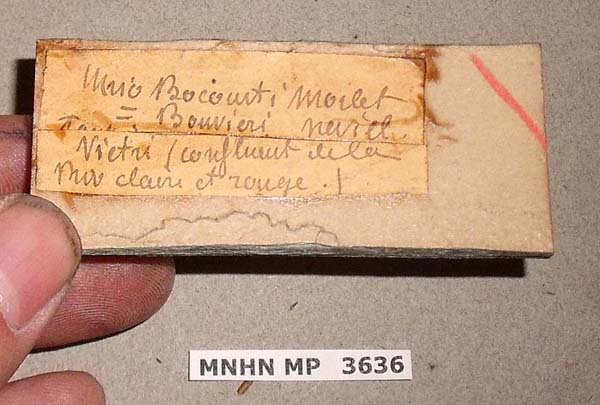 Unio Bocourti Morlet
= Bouvieri
Vietri (confluent de la
Riv claire et rouge.)
MNHN MP 3636